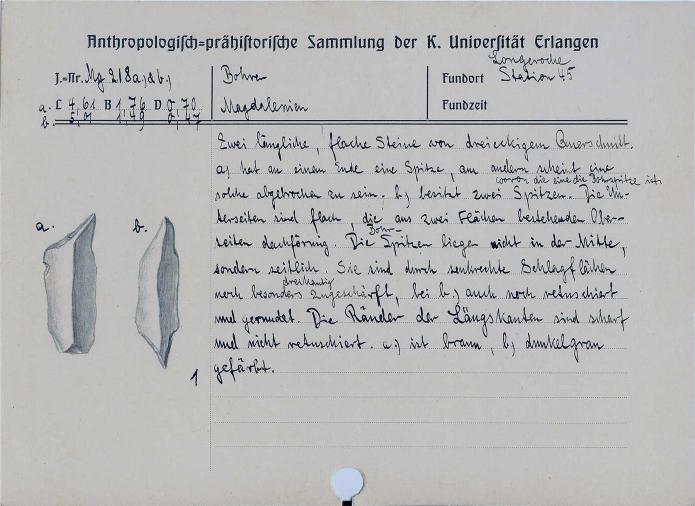 Anthropologisch=prähistorische Sammlung der K. Universität Erlangen
J.=Nr. Mg 218a,)&b,)
Bohrer
Fundort Longeroche
Station 45
a. L 4,61 B 1,76 D 0,70
b. 5,01 1,49 0,47
Magdalenien
Fundzeit
Zwei längliche, flache Steine von dreieckigem Querschnitt.
a,) hat an einem Ende eine Spitze, am andern scheint eine
solche abgebrochen zu sein. b,) besitzt zwei Spitzen, wovon die eine die Bohrspitze ist. Die Un-
terseiten sind flach, die aus zwei Flächen bestehenden Ober-
seiten dachförmig. Die Bohr-Spitzen liegen nicht in der Mitte,
sondern seitlich. Sie sind durch senkrechte Schlagflächen
noch besonders dreikantig zugeschärft, bei b,) auch noch retuschiert
und gerundet. Die Ränder der Längskanten sind scharf
und nicht retuschiert. a,) ist braun, b,) dunkelgrau
gefärbt.
a.
b.
1